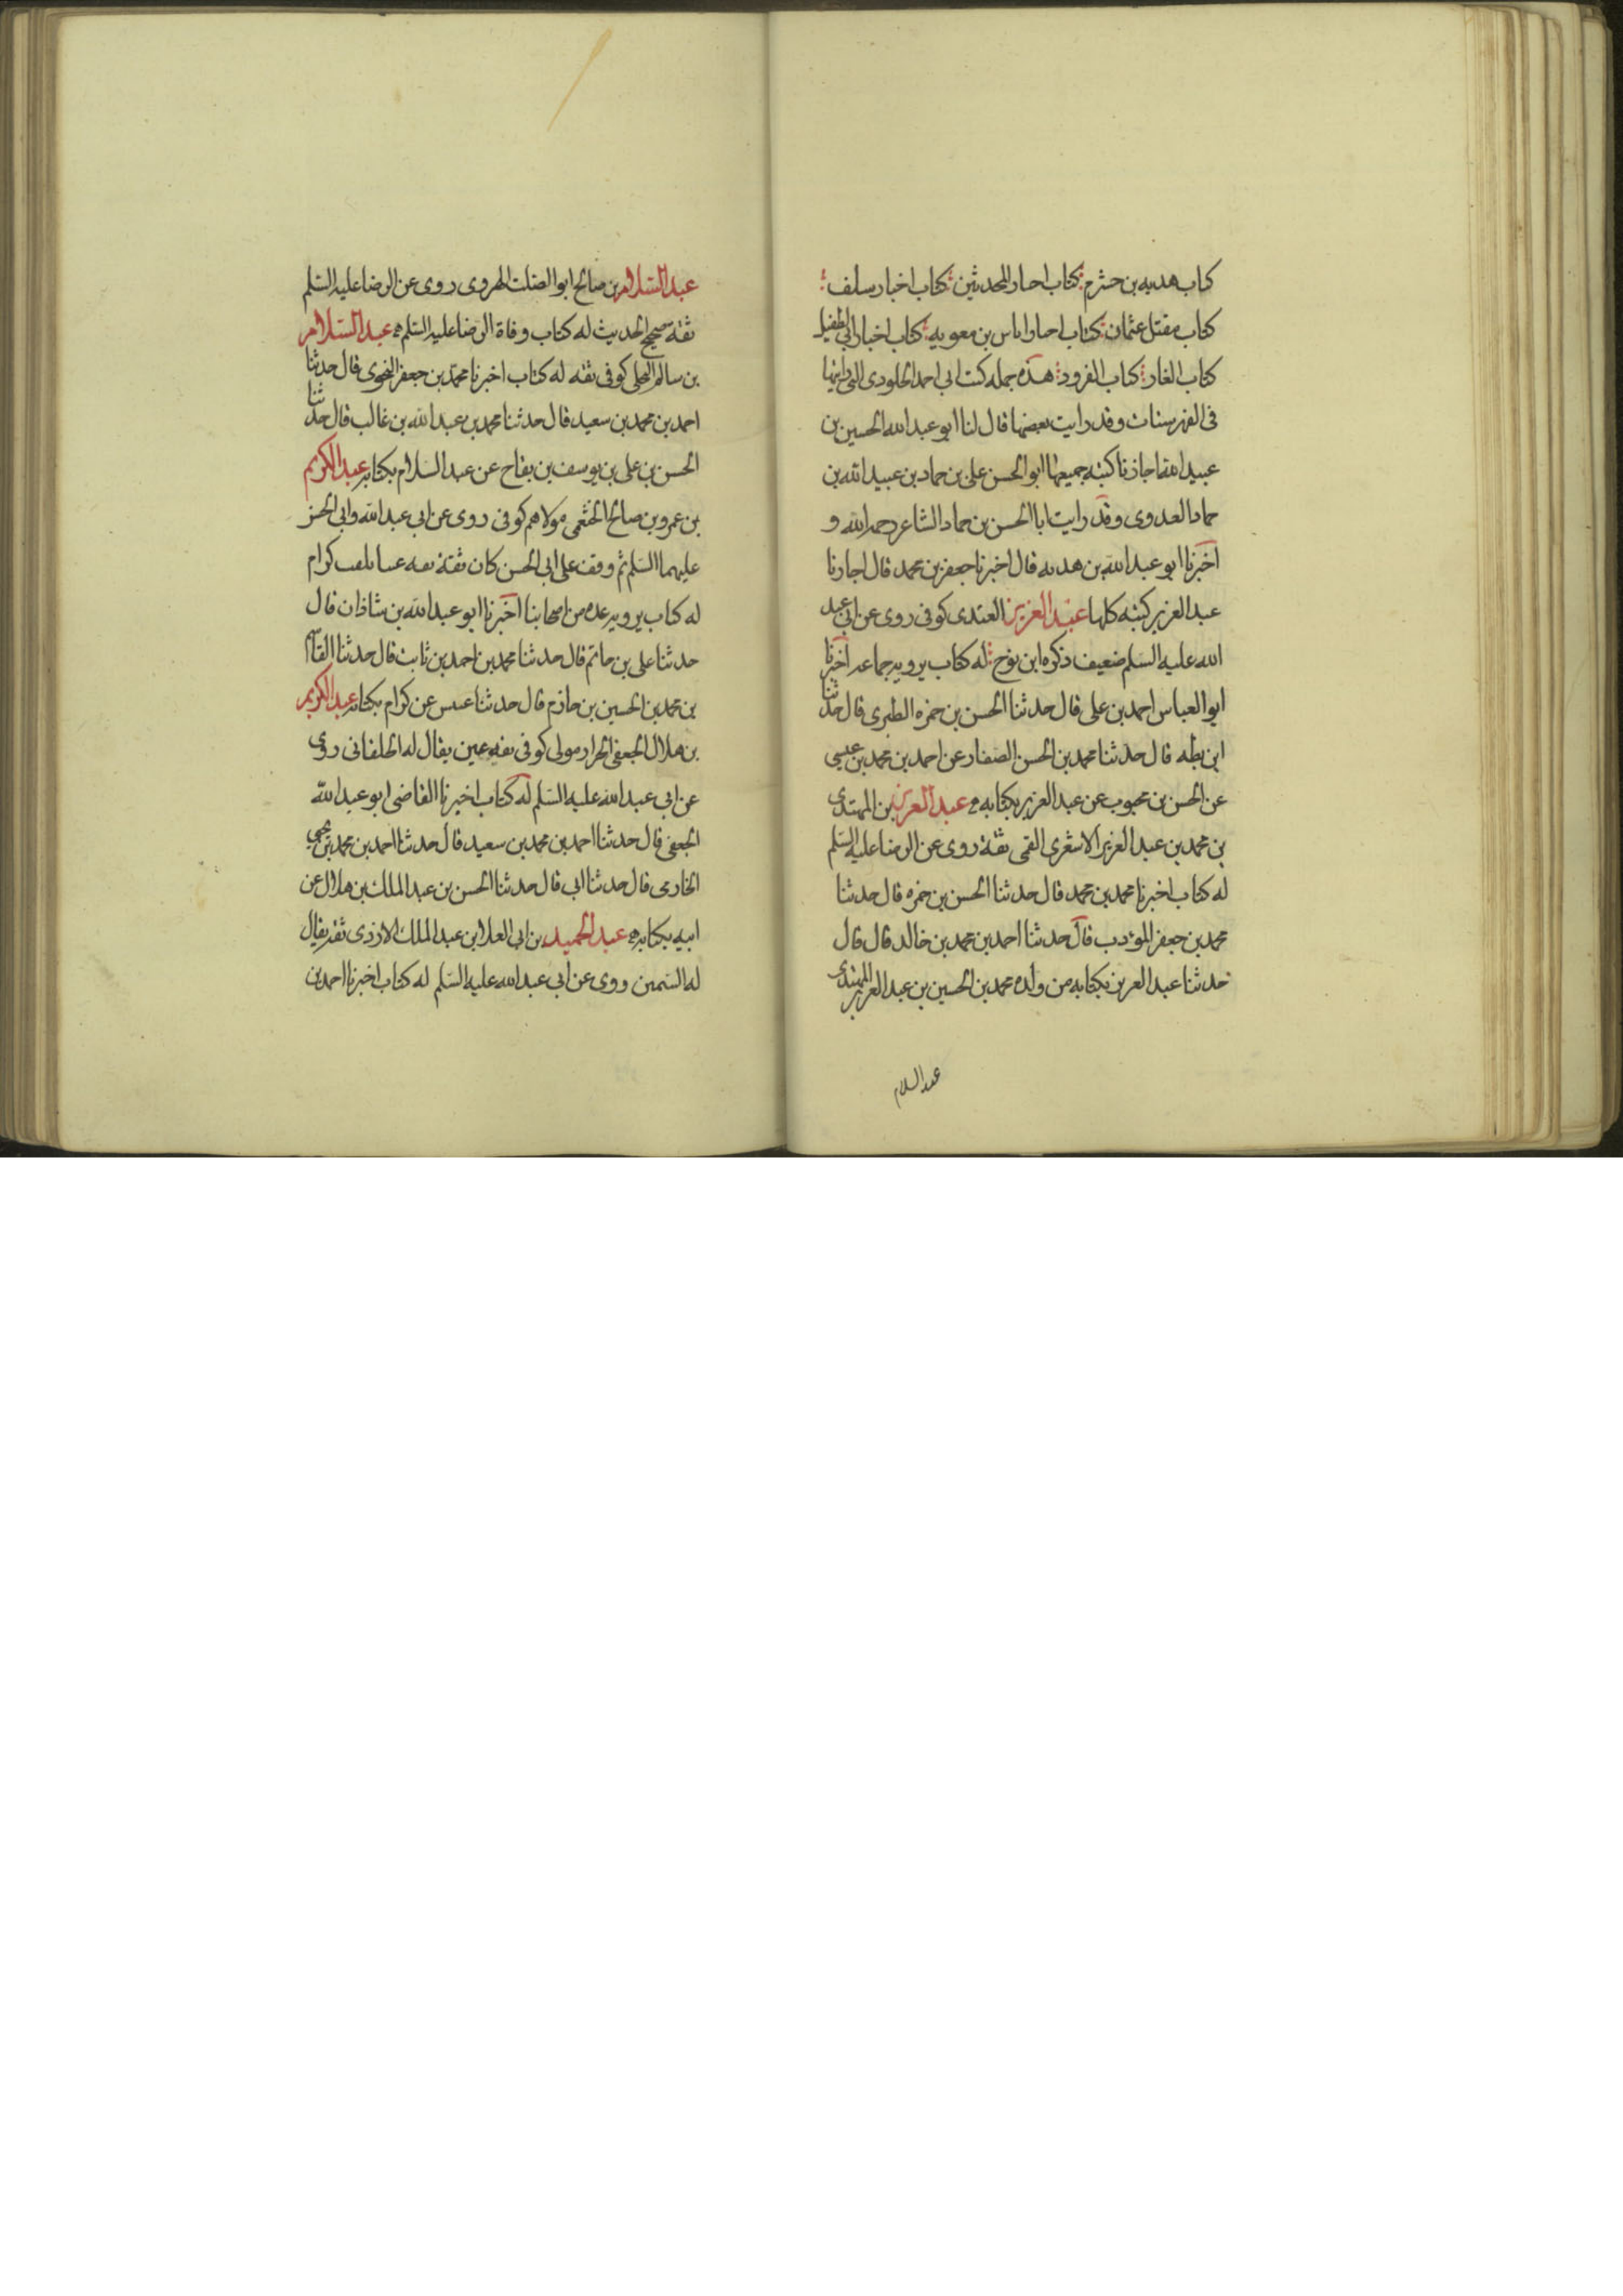 كتاب هدبه بن خشرم كتاب احبار المحدثين كتاب اخبار سلف
كتاب مقتل عثمان كتاب احبار اياس بن معويه كتاب اخبار ابي الطفيل
كتاب الغار كتاب القرود هذه جمله كتب ابي احمد الجلودى التى رايتها
فى الفهرستات وقد رايت بعضها قال لنا ابو عبد الله الحسين بن
عبيد الله اجازنا كتبه جميعها ابو الحسن على بن حماد بن عبيد الله بن
حماد العدوى وقد رايت ابا الحسن بن حماد الشاعر رحمه الله و
اخبرنا ابو عبد الله بن هدبه قال اخبرنا جعفر بن محمد قال اجازنا
عبد العزيز كتبه كلها عبد العزيز العبدى كوفى روى عن ابى عبد
الله عليه السلم ضعيف ذكره ابن نوح له كتاب يرويه جماعه اخبرنا
ابو العباس احمد بن على قال حدثنا الحسن بن حمزه الطبرى قال حدثنا
ابن بطه قال حدثنا محمد بن الحسن الصفار عن احمد بن محمد بن عيسى
عن الحسن بن محبوب عن عبد العزيز بكتابه عبد العزيز بن المهتدى
بن محمد بن عبد العزيز الاشعرى القمى ثقة روى عن الرضا عليه السلم
له كتاب اخبرنا محمد بن محمد قال حدثنا الحسن بن حمزه قال حدثنا
محمد بن جعفر المؤدب قال حدثنا احمد بن محمد بن خالد قال قال
حدثنا عبد العزيز بكتابه من ولده محمد بن الحسين بن عبد العزيز المهتدى
عبد السلام
عبد السلام بن صالح ابو الصلت الهروى روى عن الرضا عليه السلم
ثقة صحيح الحديث له كتاب وفاة الرضا عليه السلم عبد السلام
بن سالم البجلى كوفى ثقه له كتاب اخبرنا محمد بن جعفر النحوى قال حدثنا
احمد بن محمد بن سعيد قال حدثنا محمد بن عبد الله بن غالب قال حدثنا
الحسن بن على بن يوسف بن بقاح عن عبد السلام بكتابه عبد الكريم
بن عمرو بن صالح الخثعمى مولاهم كوفى روى عن ابى عبد الله وابى الحسن
عليهما السلم ثم وقف على ابى الحسن كان ثقة ثقه عينا يلقب كرام
له كتاب يرويه عده من اصحابنا اخبرنا ابو عبد الله بن شاذان قال
حدثنا على بن حاتم قال حدثنا محمد بن احمد بن ثابت قال حدثنا القاسم
بن محمد بن الحسين بن حازم قال حدثنا عبيس عن كرام بكتابه عبد الكريم
بن هلال الجعفى الخزاز مولى كوفى ثقه عين يقال له الخلقانى روى
عن ابى عبد الله عليه السلم له كتاب اخبرنا القاضى ابو عبد الله
الجعفى قال حدثنا احمد بن محمد بن سعيد قال حدثنا احمد بن محمد بن يحيى
الخازمى قال حدثنا ابى قال حدثنا الحسن بن عبد الملك بن هلال عن
ابيه بكتابه عبد الحميد بن ابى العلا ابن عبد الملك الازدى ثقه يقال
له السمين روى عن ابى عبد الله عليه السلم له كتاب اخبرنا احمد بن